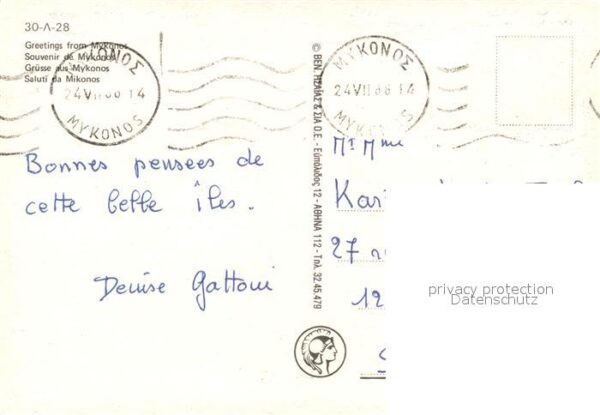 30-Λ-28
Greetings from Mykonos
Souvenir de Mykonos
Grüsse aus Mykonos
Saluti da Mikonos
ΜΥΚΟΝΟΣ
24 VII 86 14
MYKONOS
ΜΥΚΟΝΟΣ
24 VII 86 14
MYKONOS
Bonnes pensees de
cette belle îles.
Denise Gattoni
Αθήνα 12 - ΑΘΗΝΑ 112 - Τηλ. 32.45.479
Mt Mme
Kari
27
12
privacy protection
Datenschutz